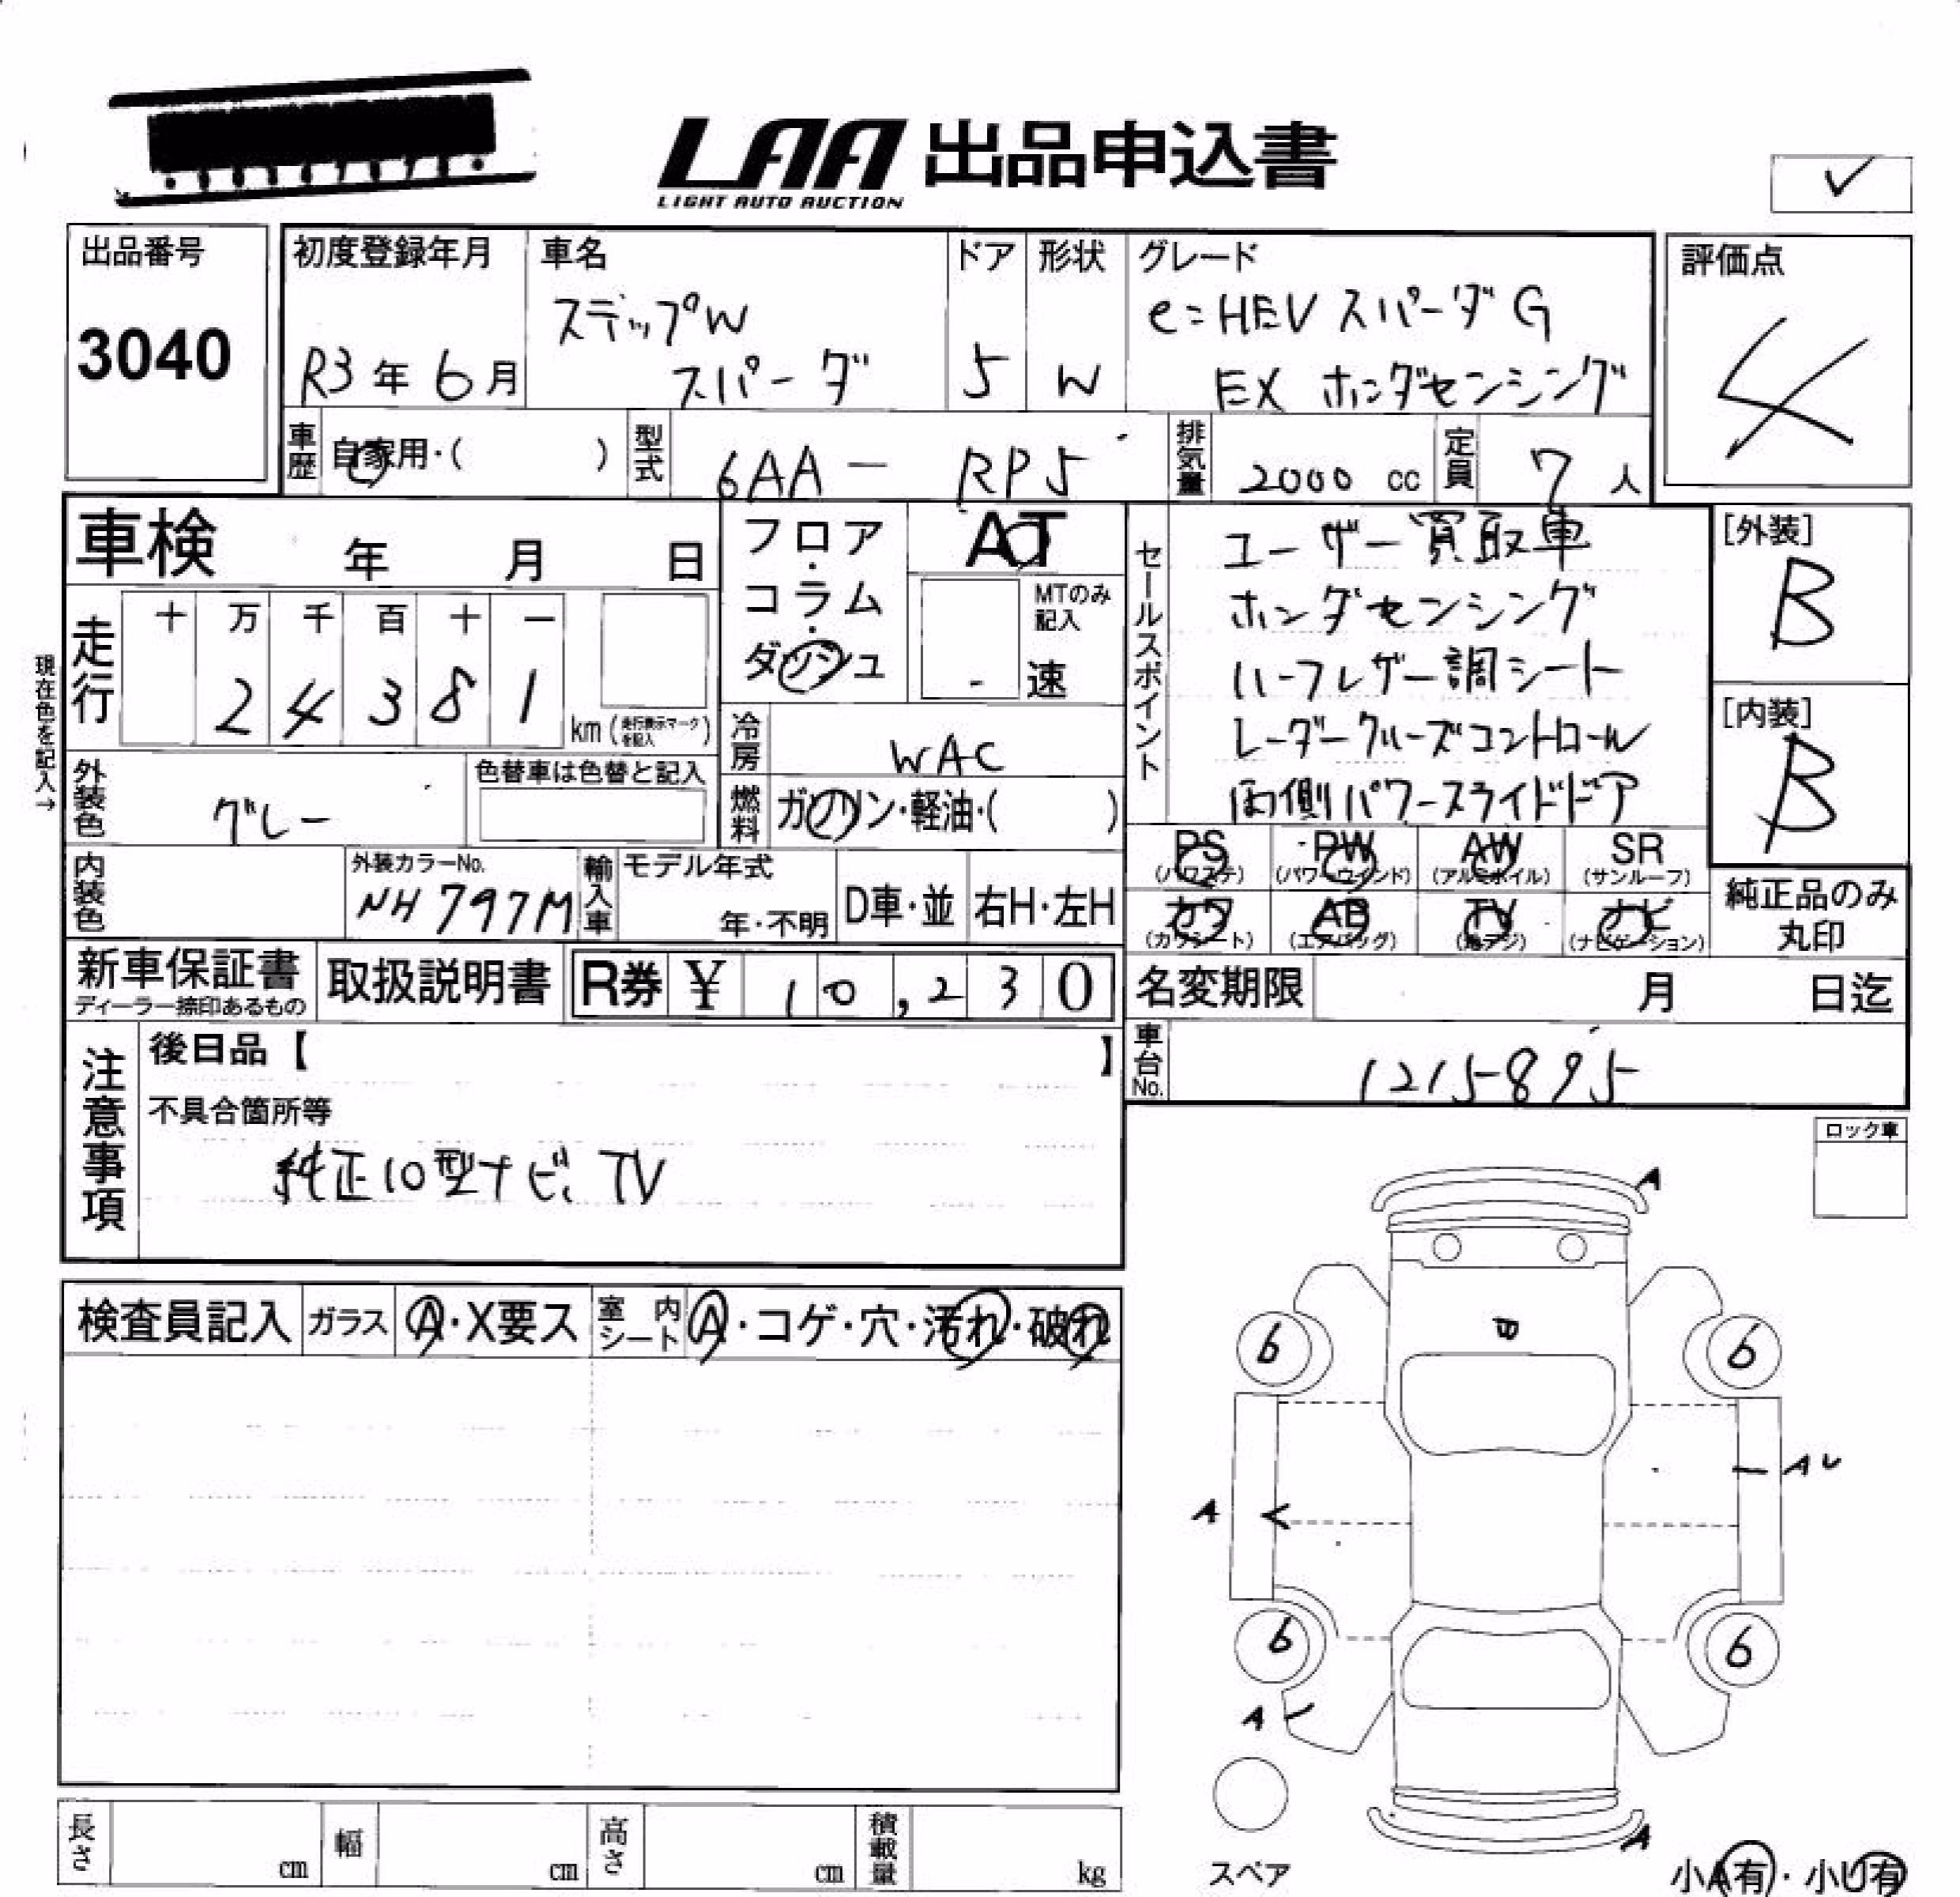 LAA 出品申込書
LIGHT AUTO AUCTION
✓
出品番号
3040
初度登録年月
R3年6月
車名
ステップW
スパーダ
ドア
5
形状
W
グレード
e:HEV スパーダ G
EX ホンダセンシング
評価点
4
車歴
自家用・( )
型式
6AA - RP5
排気量
2000 cc
定員
7人
車検 年 月 日
フロア・コラム・ダッシュ
AT
MTのみ記入
速
セールスポイント
ユーザー買取車
ホンダセンシング
ハーフレザー調シート
レーダークルーズコントロール
両側パワースライドドア
[外装]
B
[内装]
B
現在色を記入→
走行
十 万 千 百 十 一
2 4 3 8 1
km (走行表示マークを記入)
冷房
WAC
外装色
グレー
色替車は色替と記入
燃料
ガソリン・軽油・( )
PS
(パワステ)
PW
(パワーウインド)
AW
(アルミホイル)
SR
(サンルーフ)
カワ
(カワシート)
AB
(エアバッグ)
TV
(地デジ)
ナビ
(ナビゲーション)
純正品のみ
丸印
内装色
外装カラーNo.
NH797M
輸入車
モデル年式
年・不明
D車・並
右H・左H
新車保証書
ディーラー捺印あるもの
取扱説明書
R券 ¥ 10,230
名変期限 月 日迄
車台No.
1215895
注意事項
後日品【 】
不具合箇所等
純正10型ナビ、TV
ロック車
検査員記入
ガラス
A・X要ス
室内シート
A・コゲ・穴・汚れ・破れ
A
6
6
A
A
6
6
A
A
スペア
小A有・小U有
長さ cm
幅 cm
高さ cm
積載量 kg